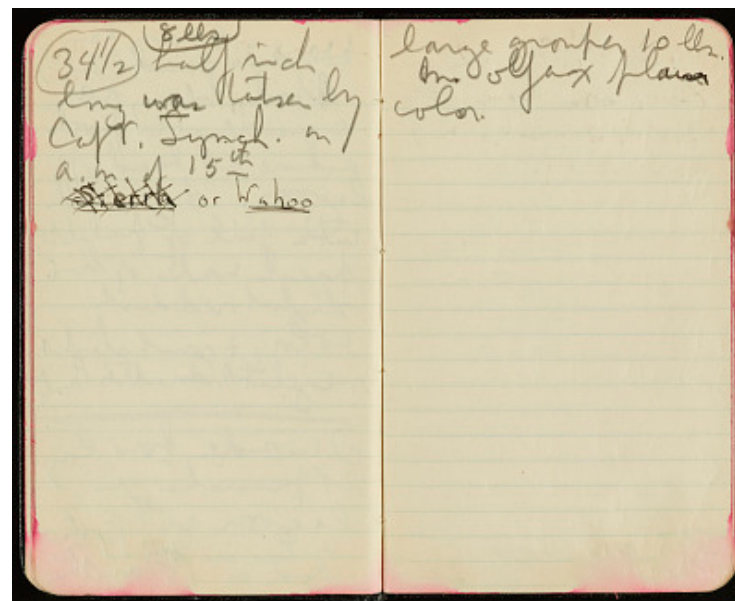 8 lbs.
34 1/2 half inch
long was taken by
Capt. Lynch. on
a.m. of 15th
Sierra or Wahoo
large grouper 10 lbs.
olfax plain
color.